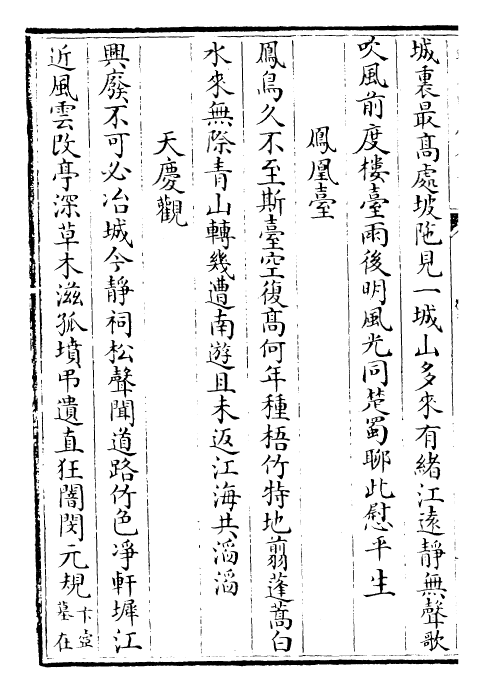 城裏最髙處坡陁見一城山多來有緒江逺靜無聲歌
吹風前度樓臺雨後明風光同楚蜀聊此慰平生
鳳凰臺
鳳鳥久不至斯臺空復髙何年種梧竹特地翦蓬蒿白
水來無際青山轉幾遭南遊且未返江海共滔滔
天慶觀
興廢不可必冶城今靜祠松聲聞道路竹色凈軒墀江
近風雲改亭深草木滋孤墳弔遺直狂闇閔元規卞壼
墓在